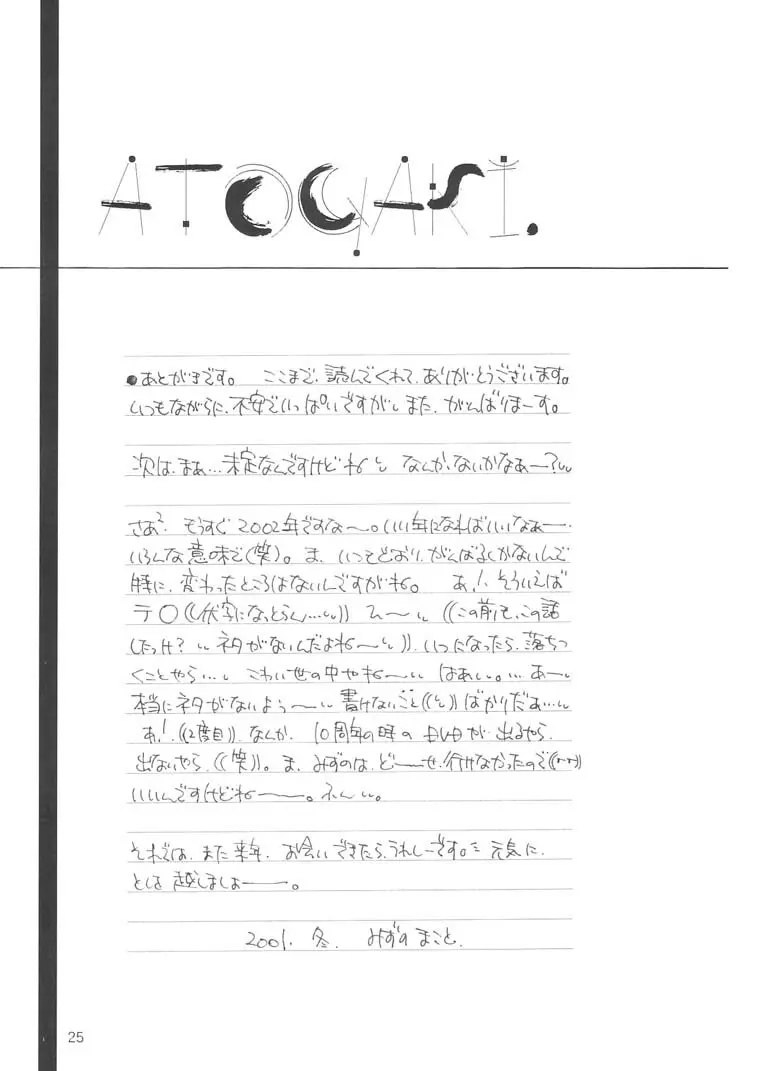 ATOGAKI.
●あとがきです。 ここまで、読んでくれて、ありがとうございます。
いつもながらに、不安でいっぱいですが、また、がんばりまーす。
次は、まぁ…未定なんですけどね なんか、ないかなぁー?
さあ² もうすぐ2002年ですな〜。いい年になればいいなぁー
いろんな意味で(笑)。ま、いつもどおり、がんばるしかないんで
特に、変わったところはないんですがね。 あ!、そういえば
テ○((伏字になっとらん…)) ひ〜 ((この前も、この話
したっけ? ネタがないんだよね〜))、いつになったら、落ちつ
くことやら… こわい世の中やね〜 はぁ…。… あー
本当にネタがないよぅ〜 書けないこと ばかりだぁ…
あ!、((2度目))、なんか、10周年の時の DVDが、出るやら、
出ないやら、((笑))。ま、みずのは、どーせ、行けなかったので
いいんですけどねー。ふん。
それでは、また来年、お会いできたら、うれしーです。 元気に、
とし越しましょー。
2001. 冬. みずの まこと.
25